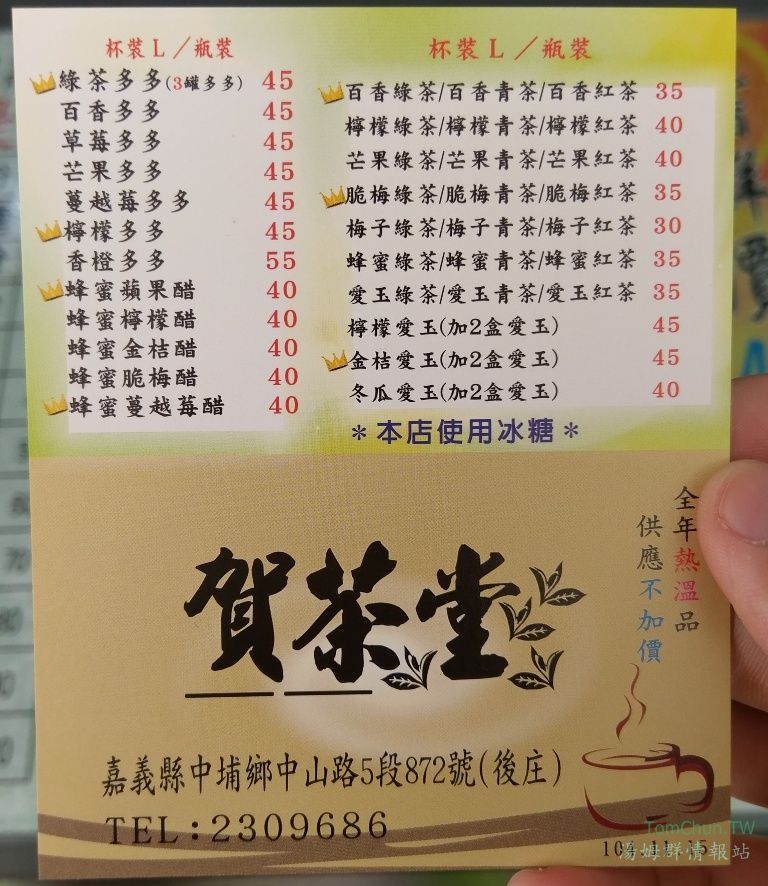 杯裝L／瓶裝
綠茶多多(3罐多多) 45
百香多多 45
草莓多多 45
芒果多多 45
蔓越莓多多 45
檸檬多多 45
香橙多多 55
蜂蜜蘋果醋 40
蜂蜜檸檬醋 40
蜂蜜金桔醋 40
蜂蜜脆梅醋 40
蜂蜜蔓越莓醋 40
杯裝L／瓶裝
百香綠茶/百香青茶/百香紅茶 35
檸檬綠茶/檸檬青茶/檸檬紅茶 40
芒果綠茶/芒果青茶/芒果紅茶 40
脆梅綠茶/脆梅青茶/脆梅紅茶 35
梅子綠茶/梅子青茶/梅子紅茶 30
蜂蜜綠茶/蜂蜜青茶/蜂蜜紅茶 35
愛玉綠茶/愛玉青茶/愛玉紅茶 35
檸檬愛玉(加2盒愛玉) 45
金桔愛玉(加2盒愛玉) 45
冬瓜愛玉(加2盒愛玉) 40
＊本店使用冰糖＊
全年熱溫品
供應不加價
賀茶堂
嘉義縣中埔鄉中山路5段872號(後庄)
TEL:2309686
TomChun.TW
湯姆群情報站